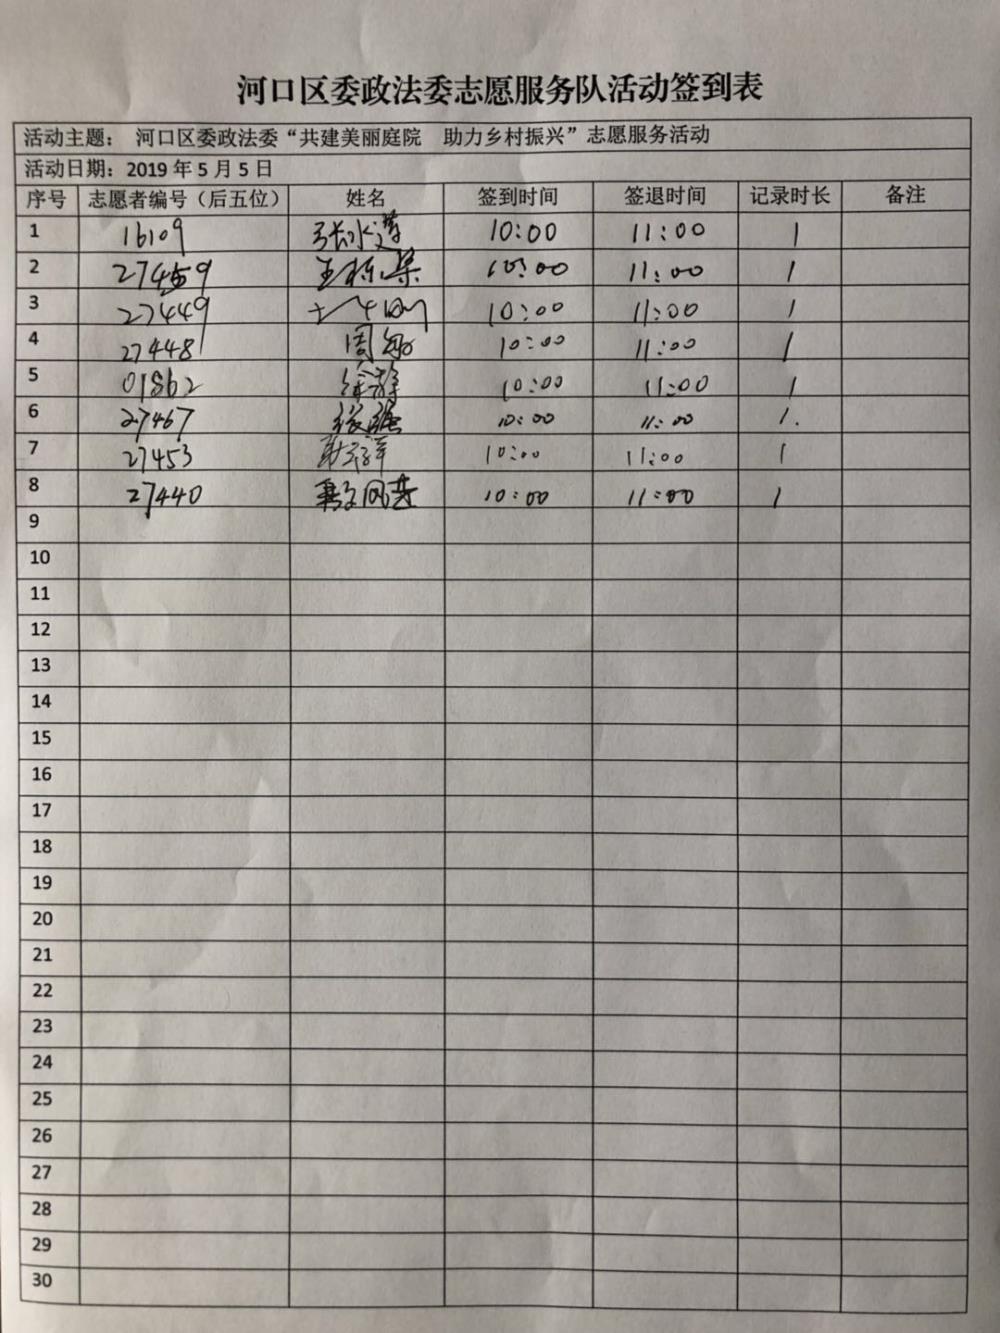 河口区委政法委志愿服务队活动签到表
活动主题： 河口区委政法委“共建美丽庭院 助力乡村振兴”志愿服务活动
活动日期：2019 年 5 月 5 日
序号 志愿者编号（后五位） 姓名 签到时间 签退时间 记录时长 备注
1 16109 张水莲 10:00 11:00 1
2 27459 10:00 11:00 1
3 27449 10:00 11:00 1
4 27448 周敏 10:00 11:00 1
5 01862 10:00 11:00 1
6 27467 10:00 11:00 1.
7 27453 10:00 11:00 1
8 27440 10:00 11:00 1
9
10
11
12
13
14
15
16
17
18
19
20
21
22
23
24
25
26
27
28
29
30